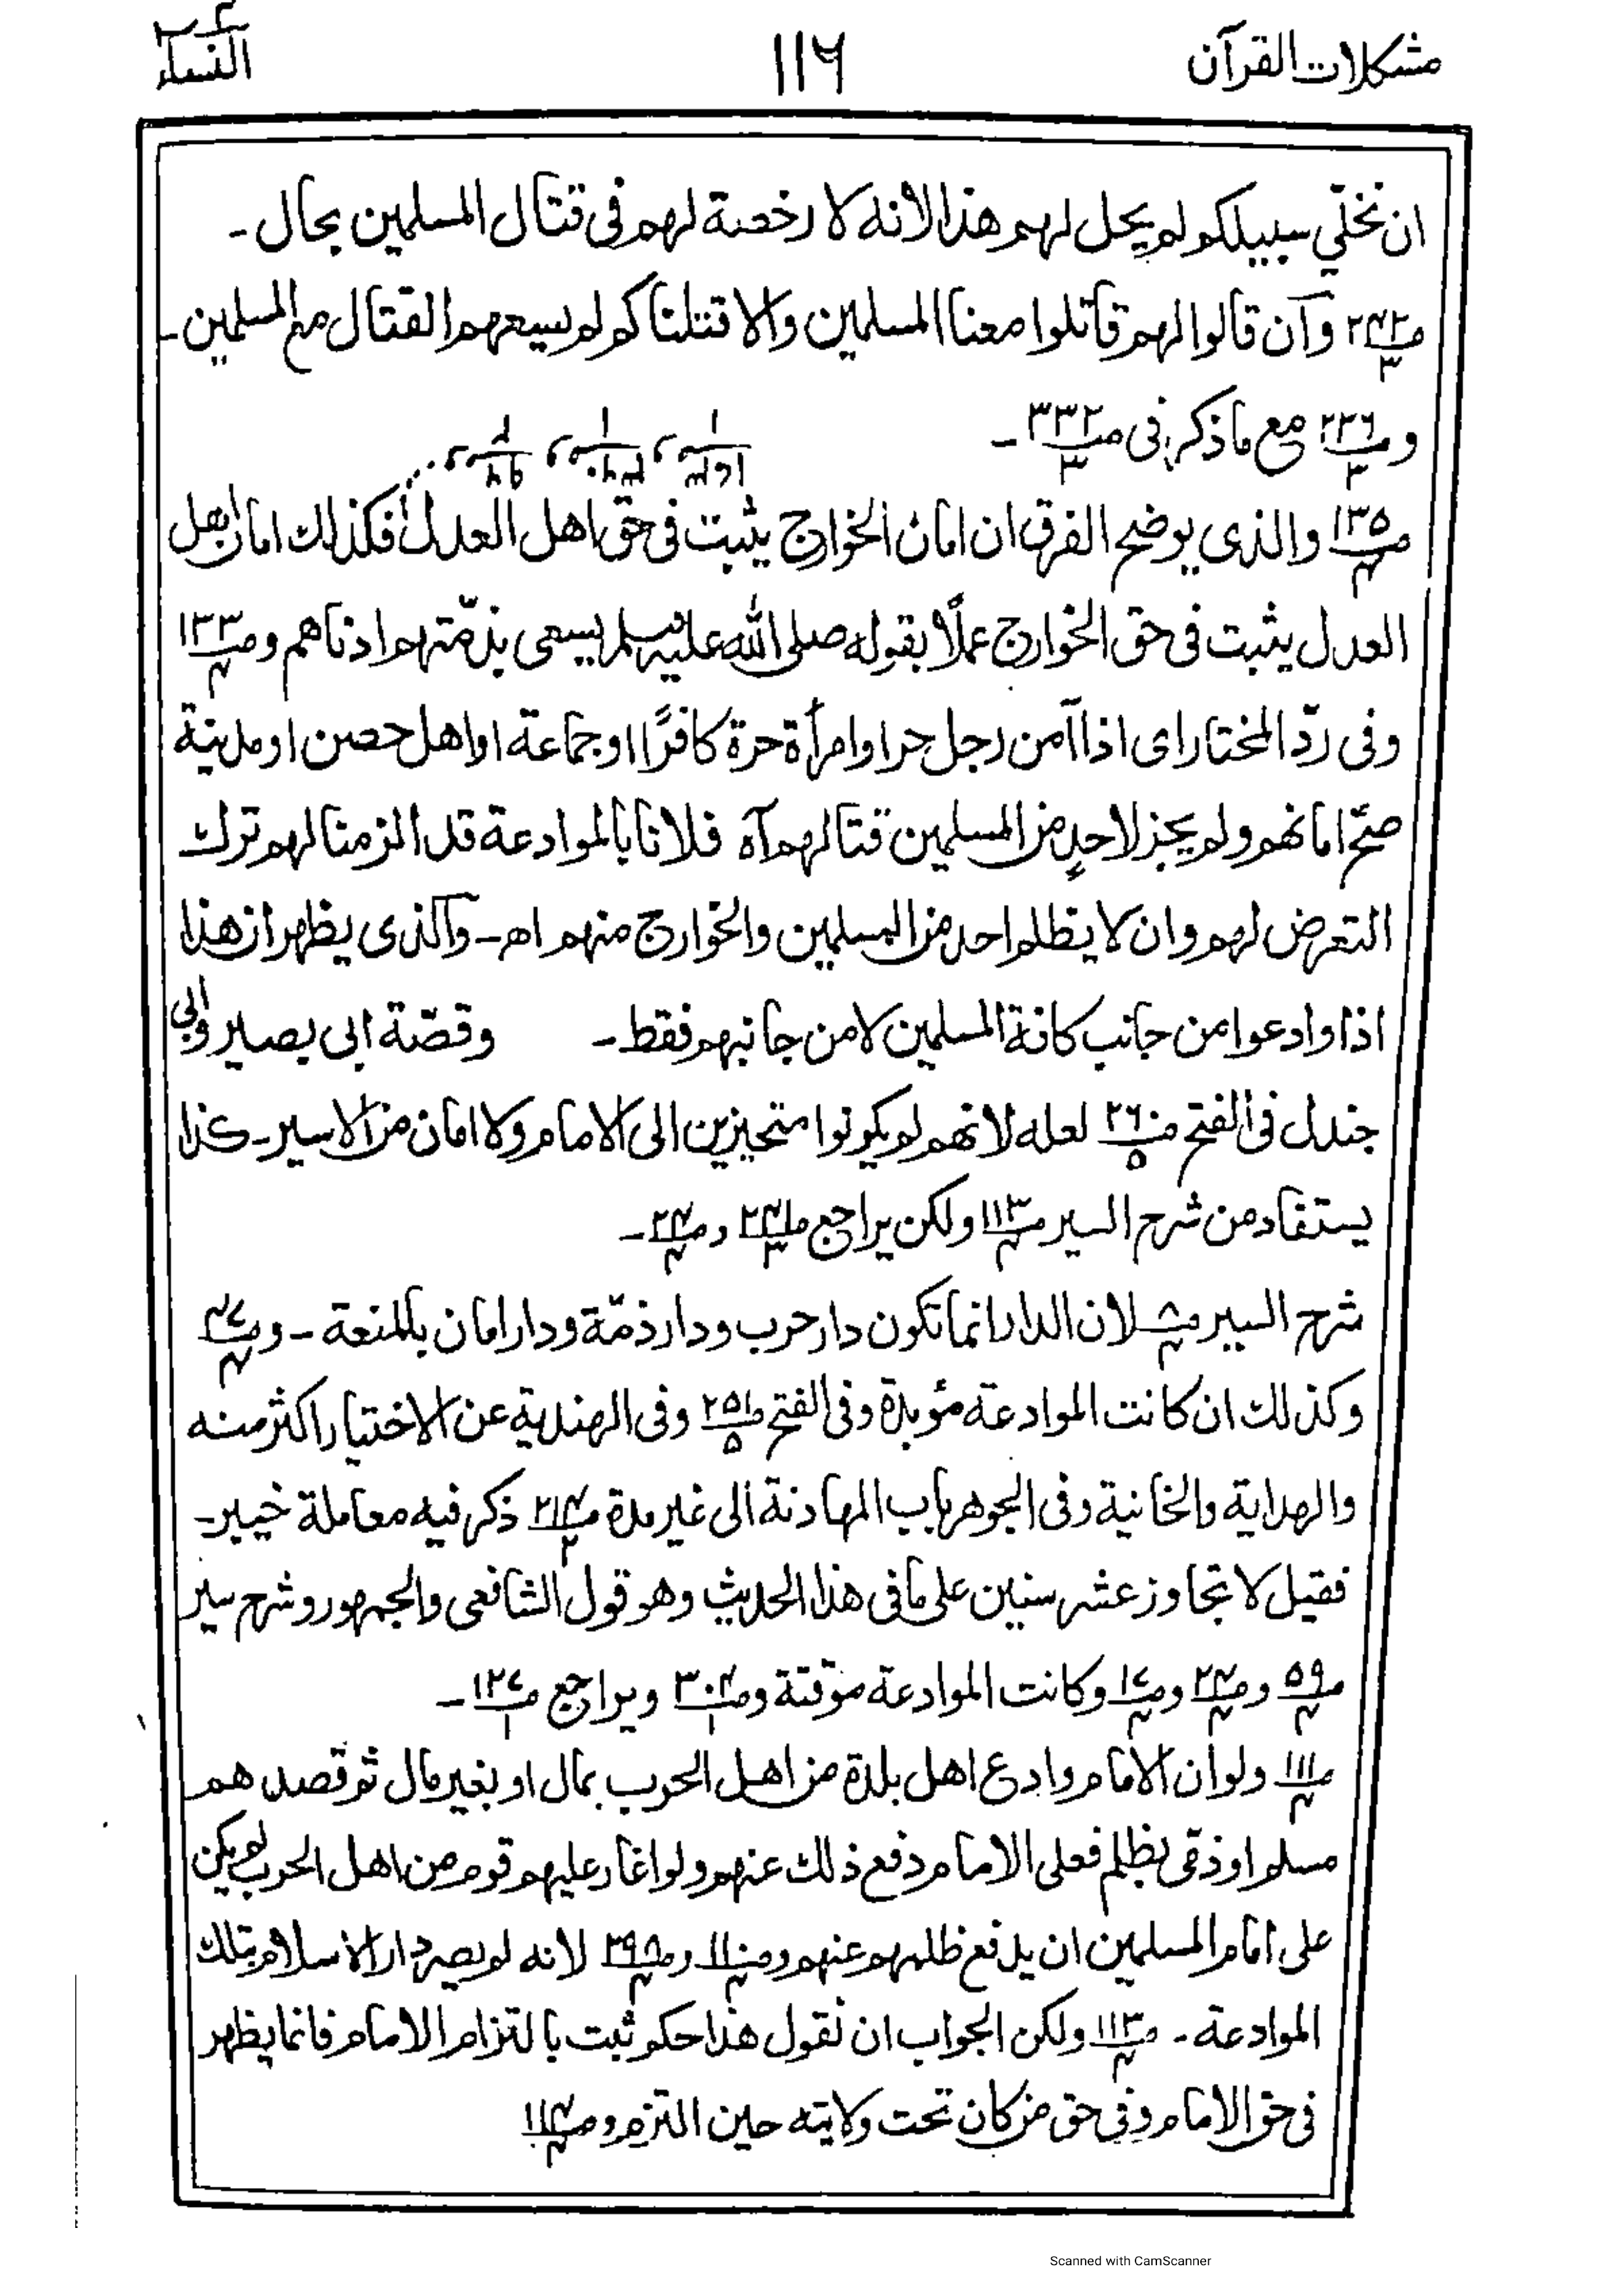 مشكلات القرآن ١١٦ النساء ٤
ان نخلّي سبيلكم لم يحل لهم هذا لانه لا رخصة لهم فى قتال المسلمين بحال ـ
وآن قالوا لهم قاتلوا معنا المسلمين والا قتلناكم لم يسعهم القتال مع المسلمين ـ
و ص٢٣٦/٣ مع ما ذكره فى ص٣٣٢/٣ ـ
ص١٣٥/٤ والذى يوضح الفرق ان امان الخوارج يثبت فى حق اهل العدل فكذلك امان اهل
العدل يثبت فى حق الخوارج عملًا بقوله صلى الله عليه وسلم يسعى بذمّتهم ادناهم وص١٣٣/٤
وفى ردّ المختار اى اذا آمن رجل حر او امرأة حرة كافرًا او جماعة او اهل حصن او مدينة
صحّ امانهم ولم يجز لاحدٍ من المسلمين قتالهم آه فلانا بالموادعة قد الزمنا لهم ترك
التعرض لهم وان لا يظلم احد من المسلمين والخوارج منهم اهـ ـ وآلذى يظهر ان هذا
اذا وادعوا من جانب كافة المسلمين لا من جانبهم فقط ـ وقصّة ابى بصير وابى
جندل فى الفتح ص٢٦/٥ لعله لانهم لم يكونوا متحيزين الى الامام ولا امان من الاسير ـ كذا
يستفاد من شرح السير ص١١٣/٤ ولكن يراجع
شرح السير ص٨/٤ لان الدار انما تكون دار حرب ودار ذمّة ودار امان بالمنعة ـ و ص٤٧/٤
وكذلك ان كانت الموادعة مؤبدة وفى الفتح ص٢٥١/٥ وفى الهندية عن الاختيار اكثر منه
والهداية والخانية وفى الجوهر باب المهادنة الى غير مدة ص٢١٤/٢ ذكر فيه معاملة خيبر ـ
فقيل لا تجاوز عشر سنين على ما فى هذا الحديث وهو قول الشافعى والجمهور وشرح سير
ص٥٩/٤ و ص٢٤/٤ و ص١٧/٤ وكانت الموادعة موقتة و ص٣٠٤/١ ويراجع ص١٢٧/١ ـ
ص١١١/٤ ولو ان الامام وادع اهل بلدة من اهل الحرب بمال او بغير مال ثم قصد هم
مسلم او ذمّى بظلم فعلى الامام دفع ذلك عنهم ولو اغار عليهم قوم من اهل الحرب لم يكن
على امام المسلمين ان يدفع ظلمهم عنهم و لانه لم يصر دار الاسلام بتلك
الموادعة ـ ص١١٣/٤ ولكن الجواب ان نقول هذا حكم ثبت بالتزام الامام فانما يظهر
فى حق الامام وفى حق من كان تحت ولايته حين التزم و ص١١٤/٤
Scanned with CamScanner